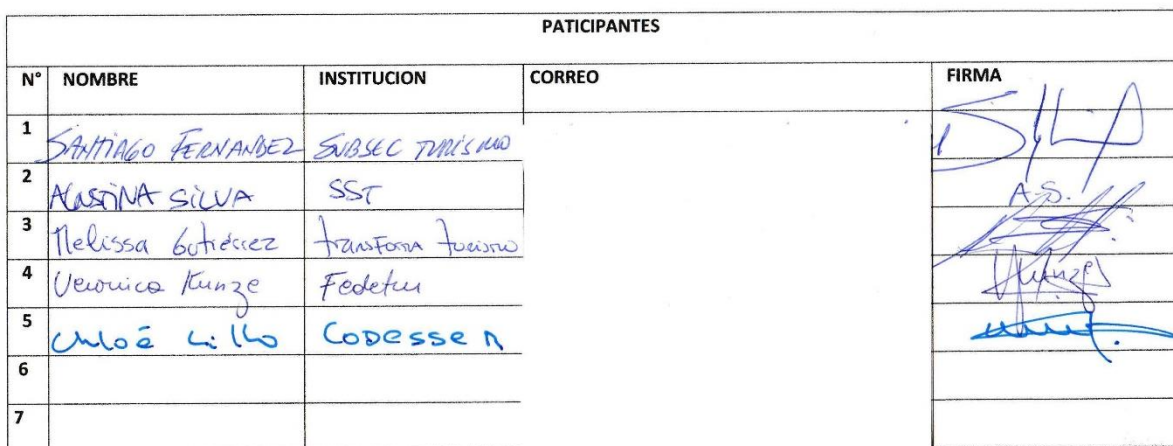 PATICIPANTES
N° NOMBRE INSTITUCION CORREO FIRMA
1 SANTIAGO FERNANDEZ SUBSEC TURISMO
2 AGUSTINA SILVA SST A.S.
3 Melissa Gutiérrez transforma turismo
4 Veronica Kunze Fedetur Kunze
5 Chloé Lillo CODESSER
6
7